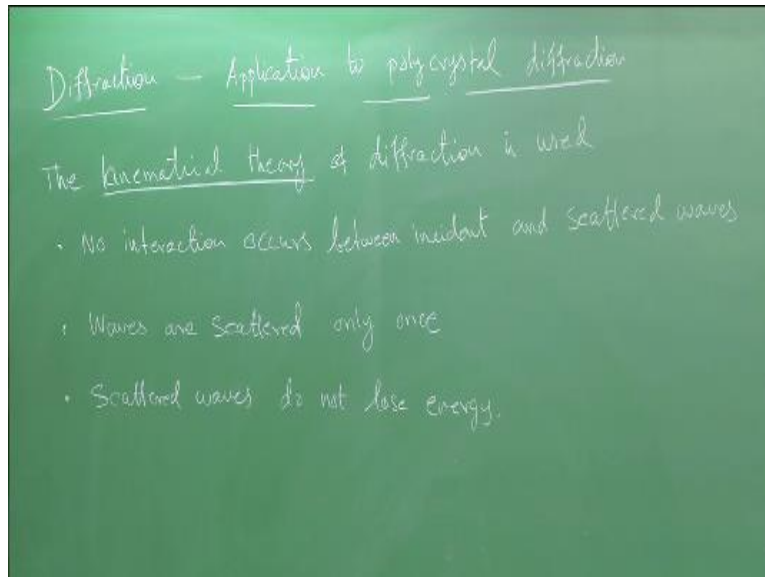 Diffraction — Application to polycrystal diffraction
The kinematical theory of diffraction is used
• No interaction occurs between incident and scattered waves
• Waves are scattered only once
• Scattered waves do not lose energy.